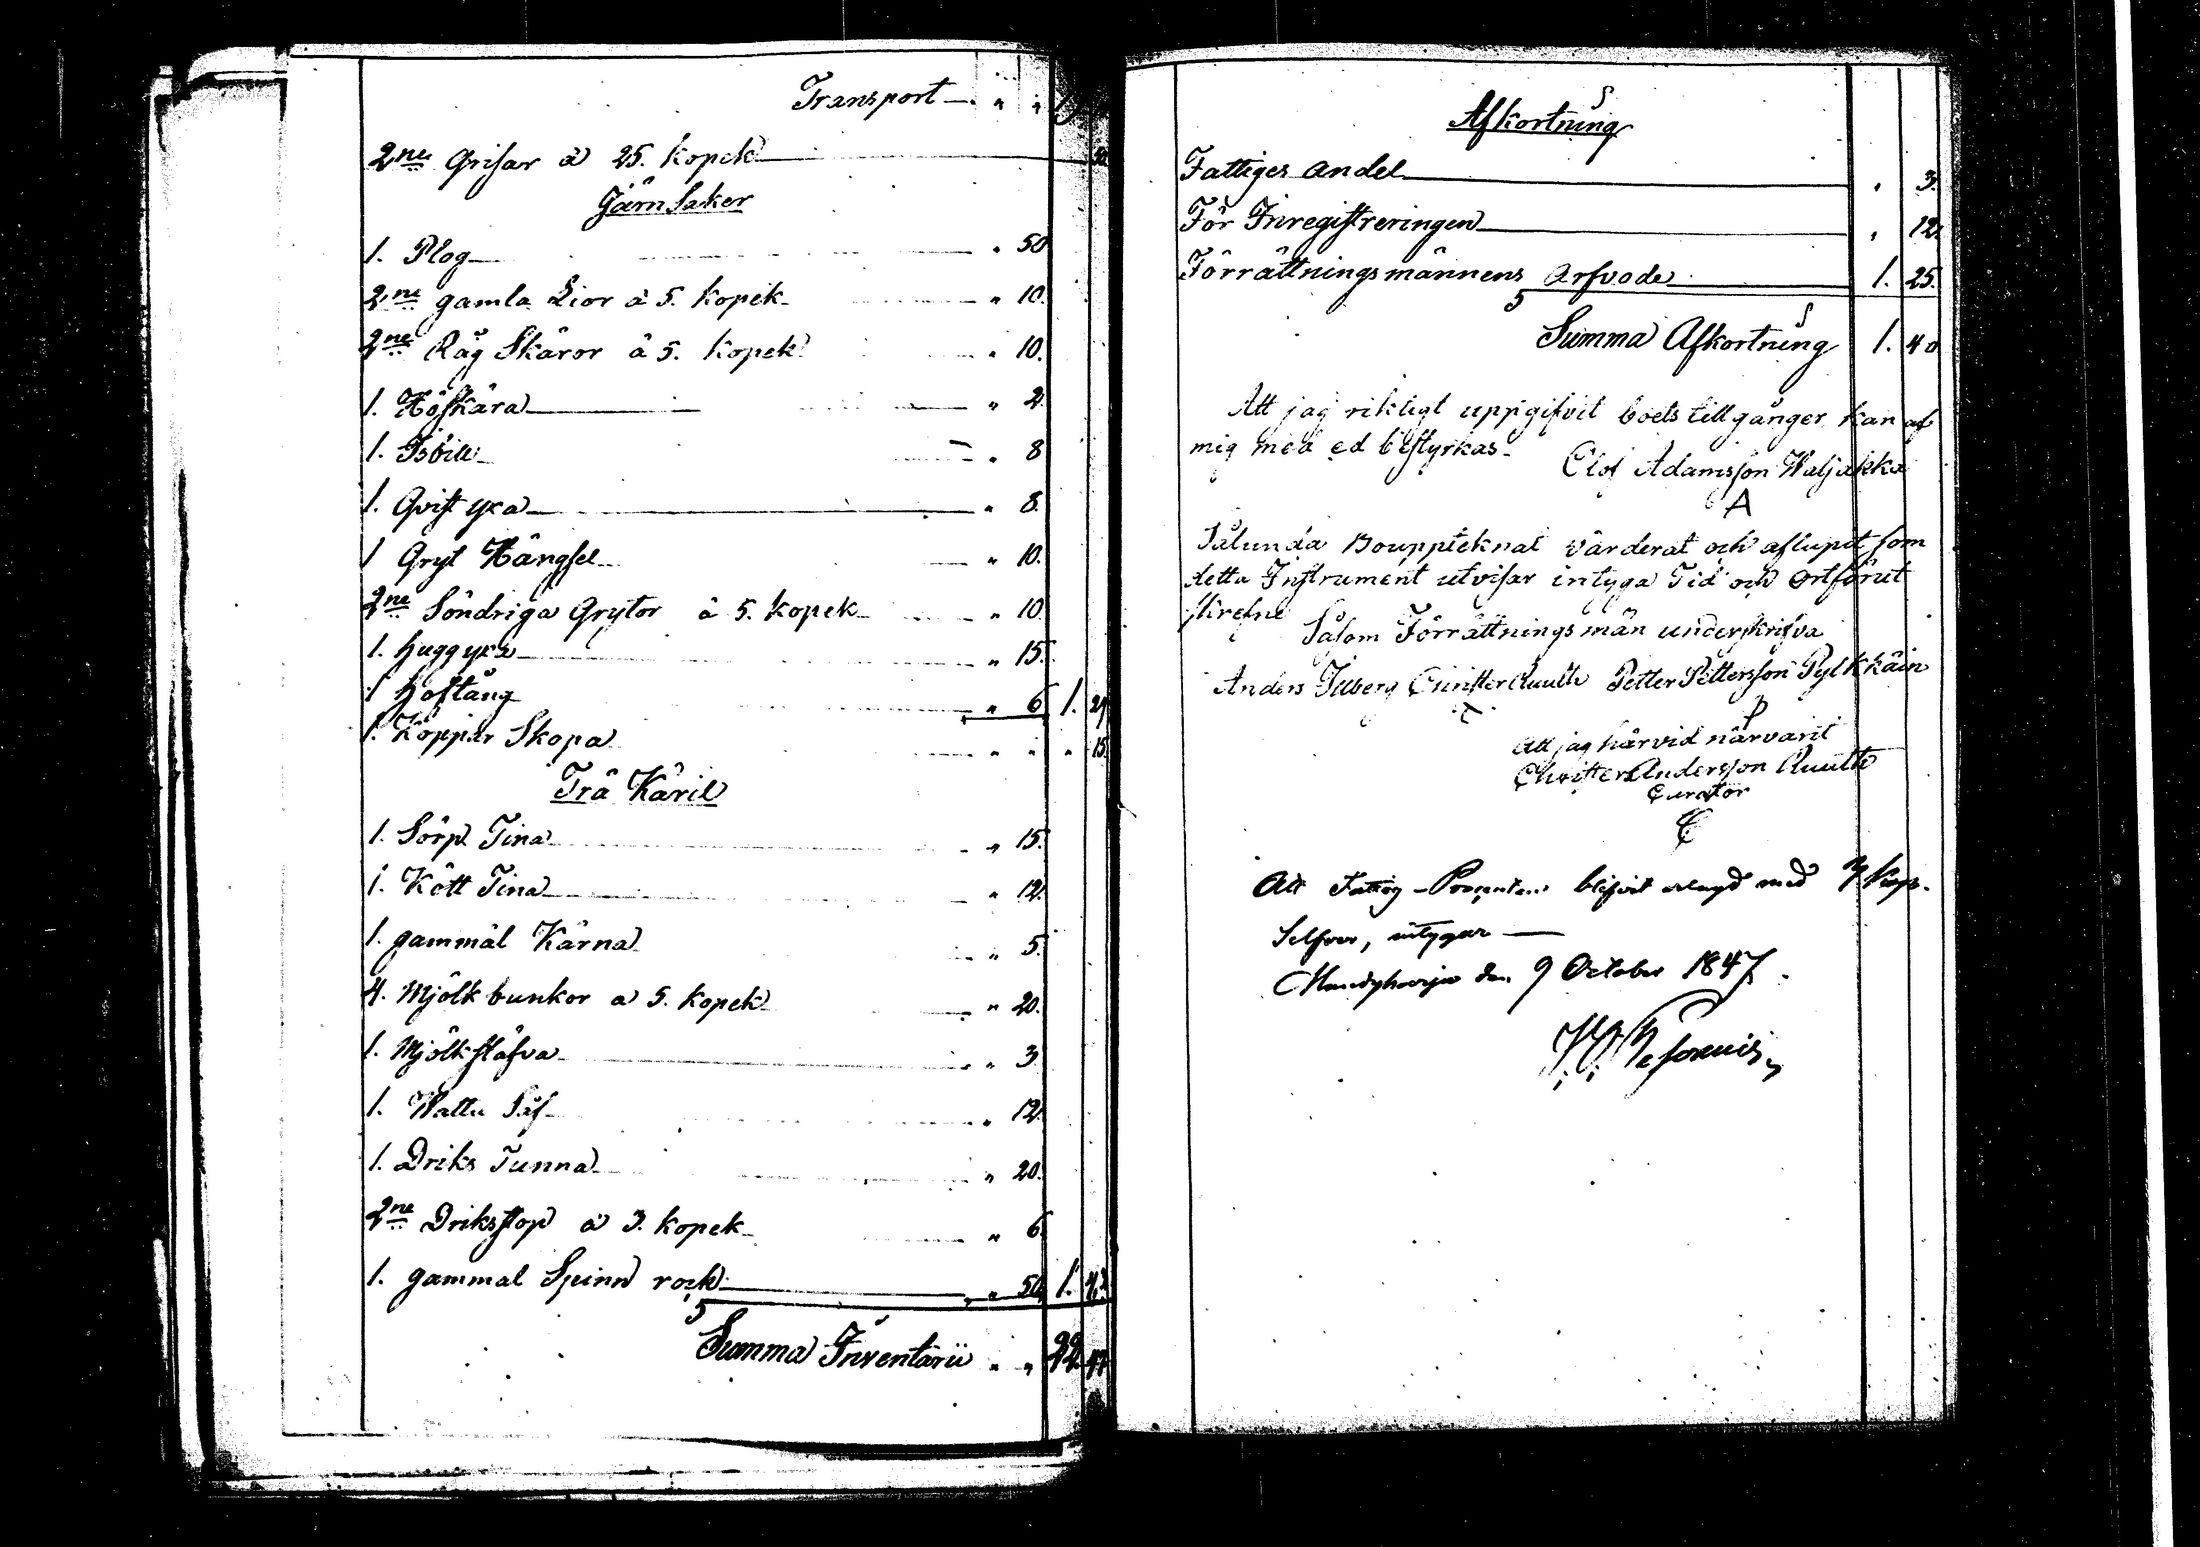 Transport — " "
2ne Grisar à 25. Kopek — 50
Järn Saker
1. Plog — " 50
2ne gamla Lior à 5. Kopek — " 10.
2ne Råg Skäror à 5. Kopek — " 10.
1. Höskära — " 2
1. Isbill — " 8
1. Qvist yxa — " 8.
1 Gryt Hängsel — " 10.
2ne Söndriga Grytor à 5. Kopek — " 10
1. Huggyxa — " 15.
1 Hoftång — " 6 1. 29
1. Koppar Skopa " " " 15
Trä Käril
1. Sörp Tina — " 15.
1. Kött Tina — " 12.
1. gammal Kärna — " 5.
4. Mjölk bunkor a 5. Kopek — " 20.
1. Mjölk stäfva — " 3
1. Wattu Så — " 12.
1. Driks Tunna — " 20.
2ne Driksstop à 3. kopek — " 6
1. gammal Spinn rock — " 50 1. 43
Summa Inventarii " " 22
Afkortning
Fattiges andel — " 3.
För Inregistreringen — " 12.
Förrättningsmännens Arfvode — 1. 25.
Summa Afkortning 1. 40
Att jag riktigt uppgifvit boets tillgånger kan af
mig med ed bestyrkas. Olof Adamsson Waljakka
A
Sålunda Bouppteknat värderat och aflupit som
detta Instrument utvisar intyga Tid och Ort förut
skrefne
Såsom Förrättnings män underskrifva
Anders Illberg Crister Ruuth Petter Pettersson Pylkkäin
P
Att jag härvid närvarit
Christer Andersson Ruuth
Curator
C
Att Fattig-Procenten blifvit erlagd med 3 Kop.
Silfver, intygar —
den 9 October 1847.